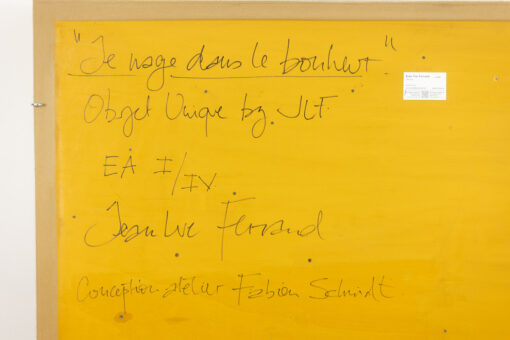 "Je nage dans le bonheur"
Objet Unique by JLF.
EA I/IV
Jean Luc Ferrand
Conception atelier Fabion Schmidt.